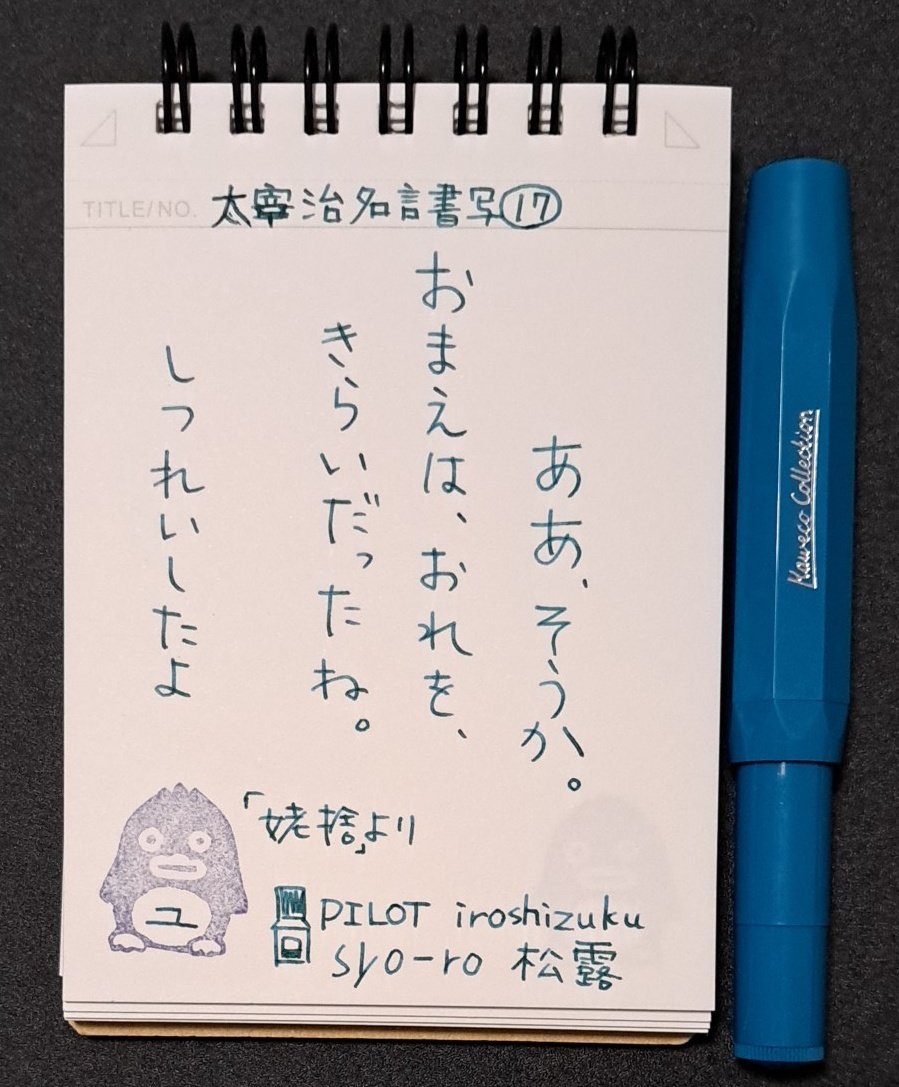 TITLE/NO. 太宰治名言書写⑰
ああ、そうか。
おまえは、おれを、
きらいだったね。
しつれいしたよ
「姥捨」より
PILOT iroshizuku
syo-ro 松露
ユ
Kaweco Collection